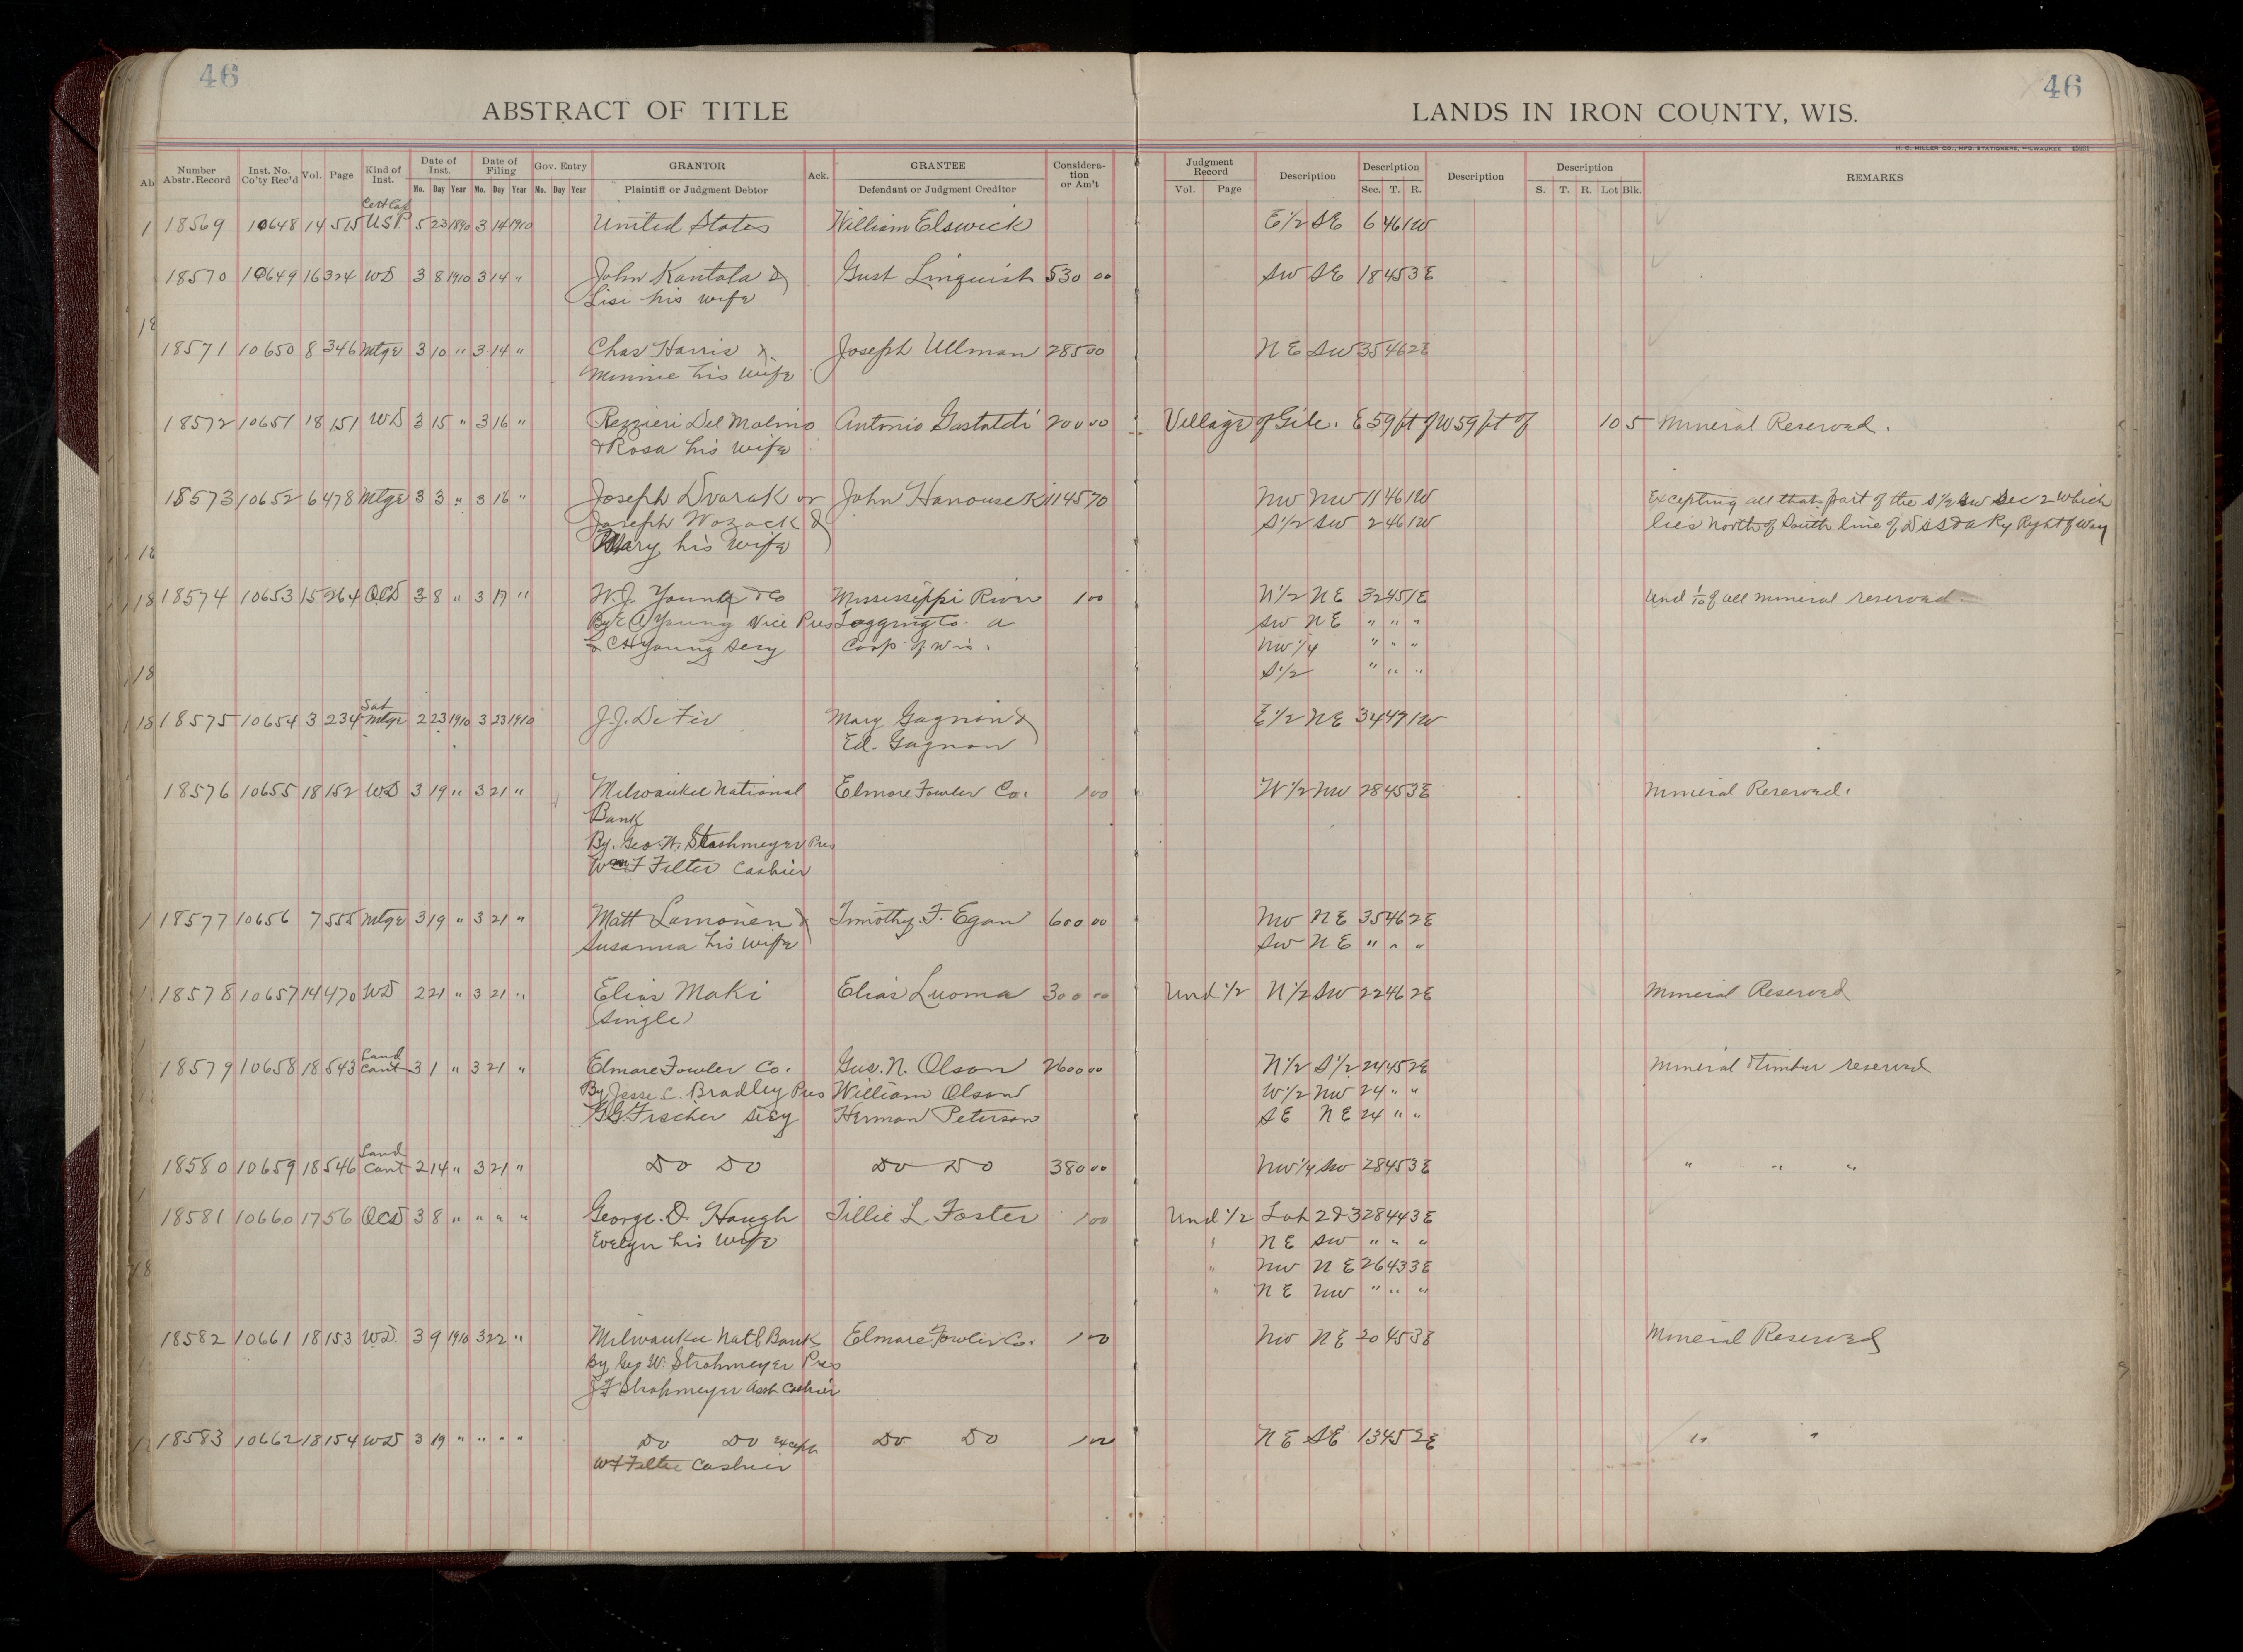 46
46
ABSTRACT OF TITLE
LANDS IN IRON COUNTY, WIS.
H. C. MILLER CO., MFG. STATIONERS, MILWAUKEE
Number Abstr. Record Inst. No. Co'ty Rec'd Vol. Page Kind of Inst. Date of Inst. Date of Filing Gov. Entry GRANTOR Ack. GRANTEE Considera-tion or Am't Judgment Record Description Description Description Description REMARKS
Mo. Day Year Mo. Day Year Mo. Day Year Plaintiff or Judgment Debtor Defendant or Judgment Creditor Vol. Page Sec. T. R. S. T. R. Lot Blk.
18569 10648 14 515 USP 5 23 1890 3 14 1910 United States William Elswick E1/2 SE 6 46 1W
18570 10649 16 324 WD 3 8 1910 3 14 " John Kantola & Gust Linquist 530 00 SW SE 18 45 3E
Lisi his wife
18571 10650 8 346 Mtge 3 10 " 3 14 " Chas Harris & Joseph Ullman 285 00 NE SW 35 46 2E
Minnie his wife
18572 10651 18 151 WD 3 15 " 3 16 " Rezzieri Del Molino Antonio Gastaldi 200 00 Village of Gile. E 59 ft of W 59 ft of 10 5 Mineral Reserved.
& Rosa his wife
18573 10652 6 478 Mtge 3 3 " 3 16 " Joseph Dvorak or John Hanousek 1145 70 NW NW 11 46 1W Excepting all that part of the S1/2 SW Sec 2 which
Joseph Wozack & S1/2 SW 2 46 1W lies North of South line of D S S & A Ry Right of Way
Mary his wife
18574 10653 15 264 QCD 3 8 " 3 17 " W.J. Young & Co Mississippi River 1 00 N1/2 NE 32 45 1E Und 1/10 of all mineral reserved.
By E A Young Vice Pres Logging Co. a SW NE " " "
& C H Young Secy Corp of Wis. NW1/4 " " "
S1/2 " " "
Sat
18575 10654 3 234 Mtge 2 23 1910 3 23 1910 J.J. De Fer Mary Gagnon & E1/2 NE 34 47 1W
Ed. Gagnon
18576 10655 18 152 WD 3 19 " 3 21 " Milwaukee National Elmore Fowler Co. 1 00 W1/2 NW 28 45 3E Mineral Reserved.
Bank
By. Geo. W. Strohmeyer Pres
Wm F Filter Cashier
18577 10656 7 555 Mtge 3 19 " 3 21 " Matt Lamonen & Timothy F. Egan 600 00 NW NE 35 46 2E
Susanna his wife SW NE " " "
18578 10657 14 470 WD 2 21 " 3 21 " Elias Maki Elias Luoma 300 00 Und 1/2 N1/2 SW 22 46 2E Mineral Reserved
(single)
Land
18579 10658 18 543 Cont 3 1 " 3 21 " Elmore Fowler Co. Gus. N. Olson 2600 00 N1/2 S1/2 24 45 2E Mineral & timber reserved
By Jesse C. Bradley Pres William Olson W1/2 NW 24 " "
G.G. Frecher Secy Herman Peterson SE NE 24 " "
Land
18580 10659 18 546 Cont 2 14 " 3 21 " Do Do Do Do 380 00 NW1/4 SW 28 45 3E " " "
18581 10660 17 56 QCD 3 8 " " " " George. D. Haugh Tillie L. Foster 1 00 Und 1/2 Lot 2 & 3 28 44 3E
Evelyn his wife " NE SW " " "
" NW NE 26 43 3E
" NE NW " " "
18582 10661 18 153 WD. 3 9 1910 3 22 " Milwaukee Natl Bank Elmore Fowler Co. 1 00 NW NE 20 45 3E Mineral Reserved
By Geo W. Strohmeyer Pres
J F Strohmeyer Asst Cashier
18583 10662 18 154 WD 3 19 " " " " Do Do except Do Do 1 00 NE SE 13 45 2E " "
W F Filter Cashier